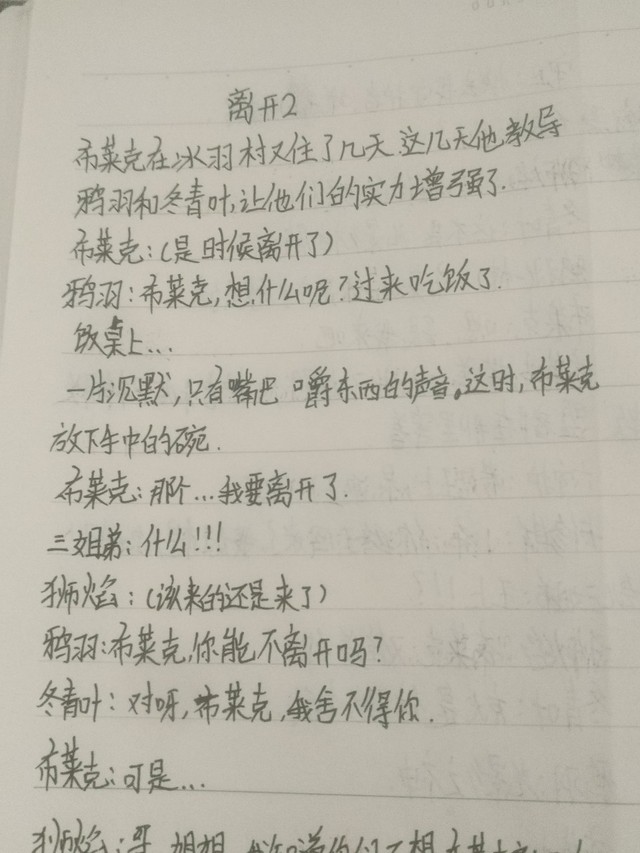 离开2
布莱克在冰羽村又住了几天,这几天他教导
鸦羽和冬青叶,让他们的实力增强了.
布莱克:(是时候离开了)
鸦羽:布莱克,想什么呢?过来吃饭了.
饭桌上...
一片沉默,只有嘴巴嚼东西的声音。这时,布莱克
放下手中的碗.
布莱克:那个...我要离开了.
三姐弟:什么!!!
狮焰:(该来的还是来了)
鸦羽:布莱克,你能不离开吗?
冬青叶:对呀,布莱克,我舍不得你.
布莱克:可是...
狮焰:哥,姐姐,我知道你们不想